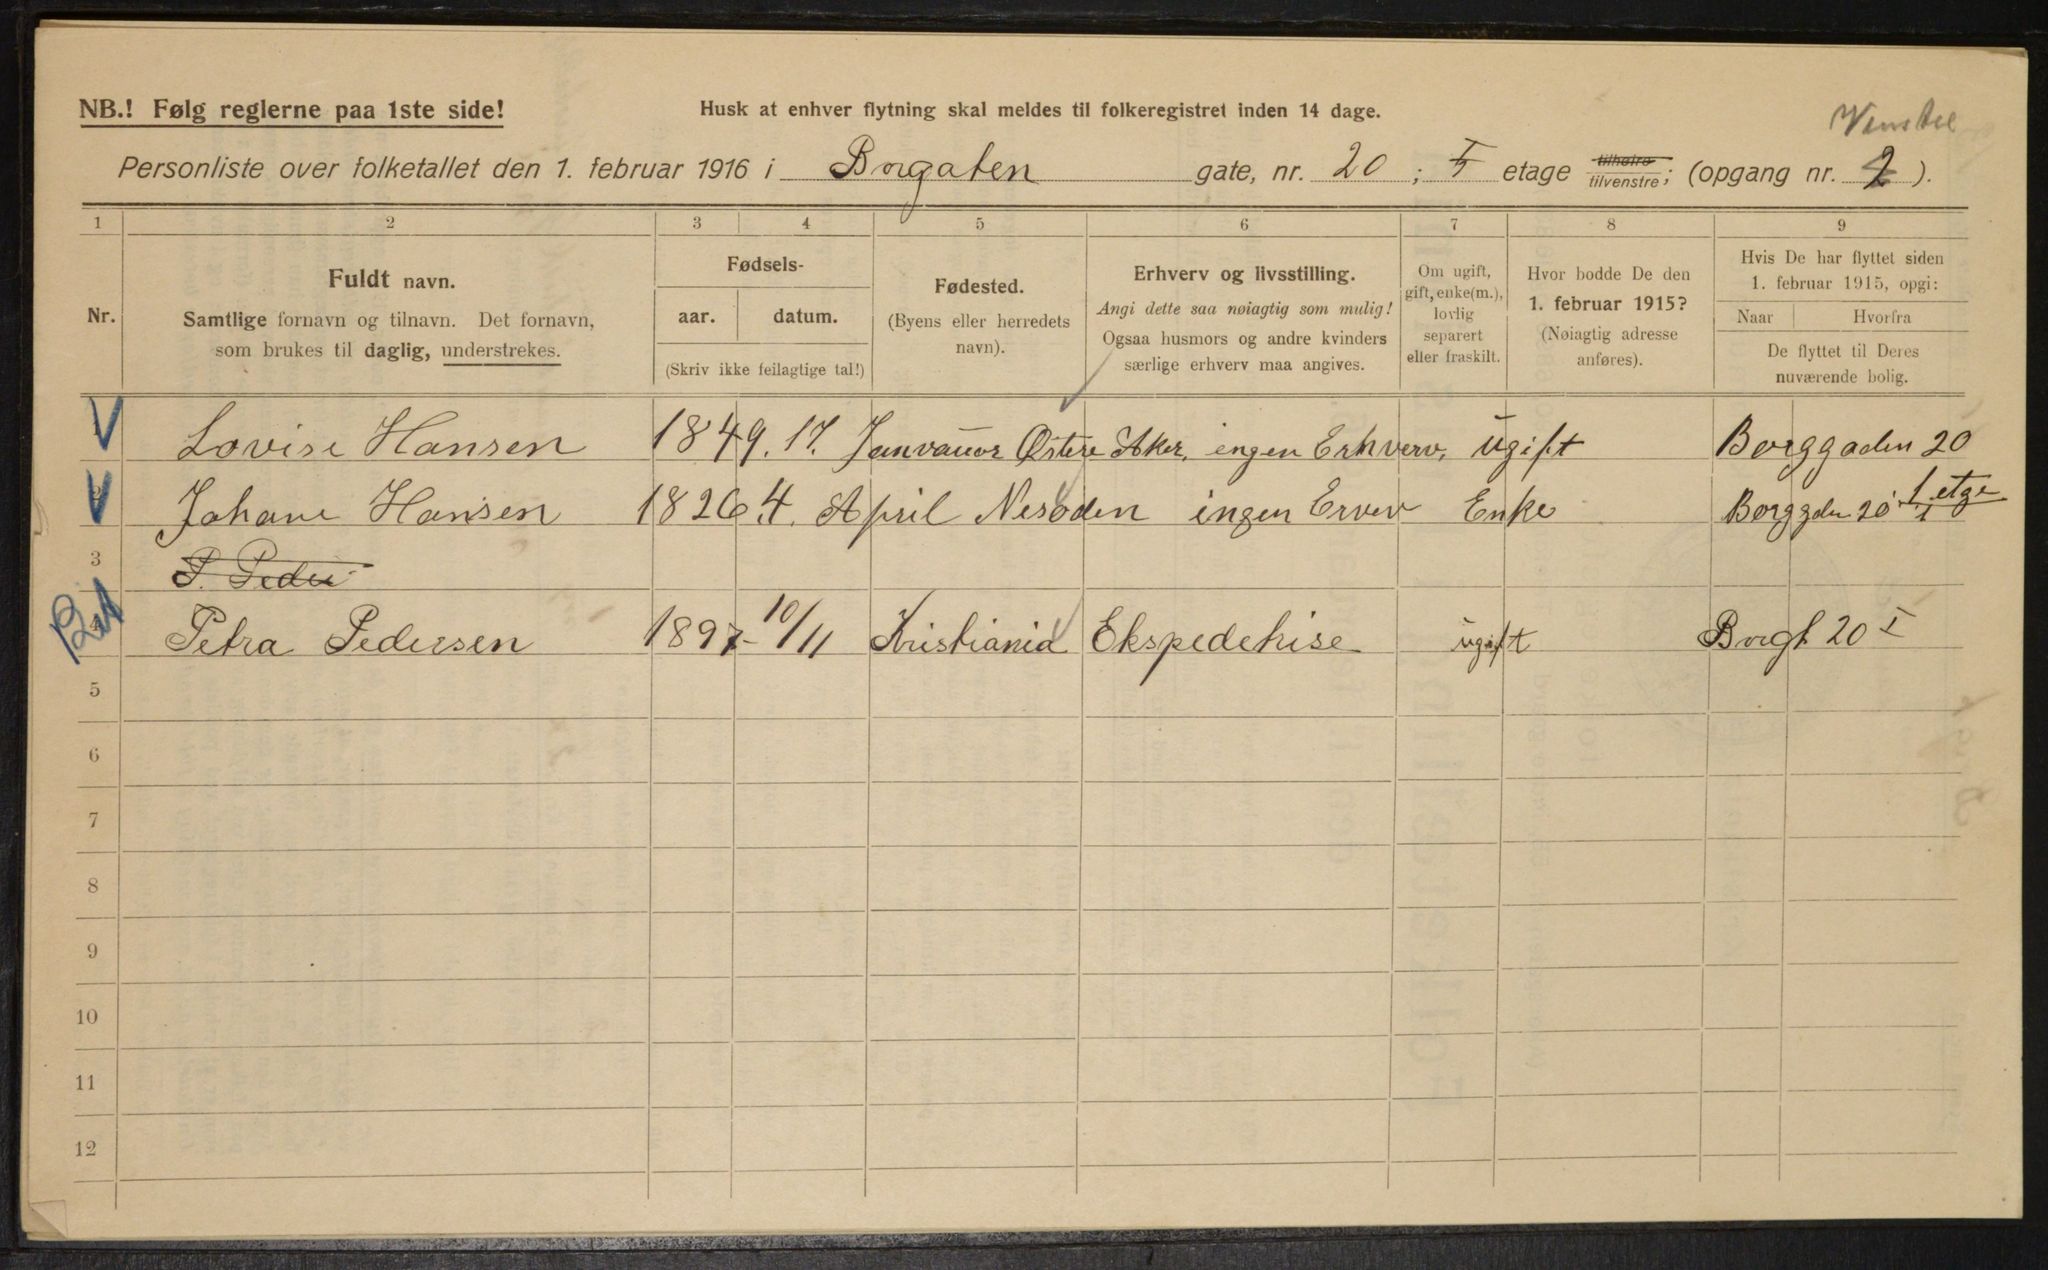 NB.! Følg reglerne paa 1ste side!
Husk at enhver flytning skal meldes til folkeregistret inden 14 dage.
Venstre
Personliste over folketallet den 1. februar 1916 i Borgaten gate, nr. 20; I etage tilhøire tilvenstre; (opgang nr. 2).
1 2 3 4 5 6 7 8 9
Nr.
Fuldt navn.
Samtlige fornavn og tilnavn. Det fornavn,
som brukes til daglig, understrekes.
Fødsels-
aar. datum.
(Skriv ikke feilagtige tal!)
Fødested.
(Byens eller herredets
navn).
Erhverv og livsstilling.
Angi dette saa nøiagtig som mulig!
Ogsaa husmors og andre kvinders
særlige erhverv maa angives.
Om ugift,
gift, enke(m.),
lovlig
separert
eller fraskilt.
Hvor bodde De den
1. februar 1915?
(Nøiagtig adresse
anføres).
Hvis De har flyttet siden
1. februar 1915, opgi:
Naar Hvorfra
De flyttet til Deres
nuværende bolig.
Lovise Hansen 1849. 17. Janvauor Østere Aker, ingen Erhverv, ugift Borggaden 20
2 Johane Hansen 1826 4. April Nesodden ingen Erverv Enke Borggden 20 1 etge
3 P. Peder
4 Petra Pedersen 1897 - 10/11 Kristiania Ekspedetrise ugift Borgt 20 I
5
6
7
8
9
10
11
12